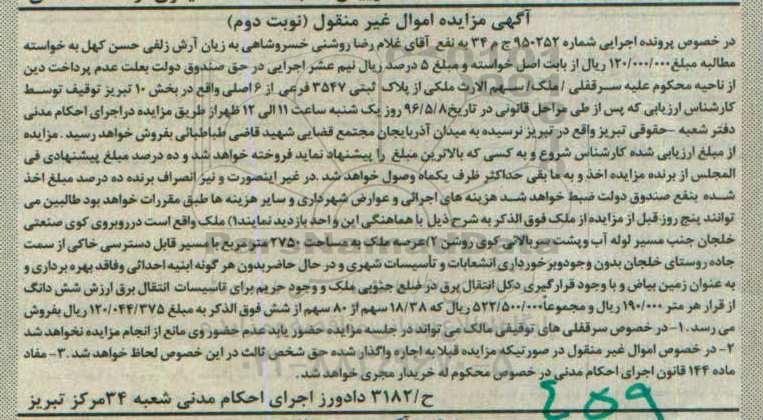 آگهی مزایده اموال غیر منقول (نوبت دوم)
در خصوص پرونده اجرایی شماره ۹۵۰۲۵۲ ج م ۳۴ به نفع آقای غلام رضا روشنی خسروشاهی به زیان آرش زلفی حسن کهل به خواسته
مطالبه مبلغ ۱۲۰/۰۰۰/۰۰۰ ریال از بابت اصل خواسته و مبلغ ۵ درصد ریال نیم عشر اجرایی در حق صندوق دولت بعلت عدم پرداخت دین
از ناحیه محکوم علیه سرقفلی / ملک/ سهم الارث ملکی از پلاک ثبتی ۳۵۴۷ فرعی از ۶ اصلی واقع در بخش ۱۰ تبریز توقیف توسط
کارشناس ارزیابی که پس از طی مراحل قانونی در تاریخ ۹۶/۵/۸ روز یک شنبه ساعت ۱۱ الی ۱۲ ظهر از طریق مزایده در اجرای احکام مدنی
دفتر شعبه -حقوقی تبریز واقع در تبریز نرسیده به میدان آذربایجان مجتمع قضایی شهید قاضی طباطبائی بفروش خواهد رسید . مزایده
از مبلغ ارزیابی شده کارشناس شروع و به کسی که بالاترین مبلغ را پیشنهاد نماید فروخته خواهد شد و ده درصد مبلغ پیشنهادی فی
المجلس از برنده مزایده اخذ و به ما بقی حداکثر ظرف یکماه وصول خواهد شد .در غیر اینصورت و نیز انصراف برنده ده درصد مبلغ اخذ
شده بنفع صندوق دولت ضبط خواهد شد هزینه های اجرائی و عوارض شهرداری و سایر هزینه ها طبق مقررات خواهد بود طالبین می
توانند پنج روز قبل از مزایده از ملک فوق الذکر به شرح ذیل با هماهنگی این واحد بازدید نمایند۱) ملک واقع است درروبروی کوی صنعتی
خلجان جنب مسیر لوله آب وپشت سربالائی کوی روشن ۲)عرصه ملک به مساحت ۲۷۵۰ مترمربع با مسیر قابل دسترسی خاکی از سمت
جاده روستای خلجان بدون وجودوبرخورداری انشعابات و تأسیسات شهری و در حال حاضر بدون هر گونه ابنیه احداثی وفاقد بهره برداری و
به عنوان زمین بیاض و با وجود قرارگیری دکل انتقال برق در ضلع جنوبی ملک و وجود حریم برای تاسیسات انتقال برق ارزش شش دانگ
از قرار هر متر ۱۹۰/۰۰۰ ریال و مجموعاً ۵۲۲/۵۰۰/۰۰۰ ریال که ۱۸/۳۸ سهم از ۸۰ سهم از شش فوق الذکر به مبلغ ۱۲۰/۰۴۴/۳۷۵ ریال بفروش
می رسد .۱- در خصوص سرقفلی های توقیفی مالک می تواند در جلسه مزایده حضور یابد عدم حضور وی مانع از انجام مزایده نخواهد شد
۲- در خصوص اموال غیر منقول در صورتیکه مزایده قبلا به اجاره واگذار شده حق شخص ثالث در این خصوص لحاظ خواهد شد .۳- مفاد
ماده ۱۴۴ قانون اجرای احکام مدنی در خصوص محکوم له خریدار مجری خواهد شد .
ح/۳۱۸۲ دادورز اجرای احکام مدنی شعبه ۳۴ مرکز تبریز
۴۵۹